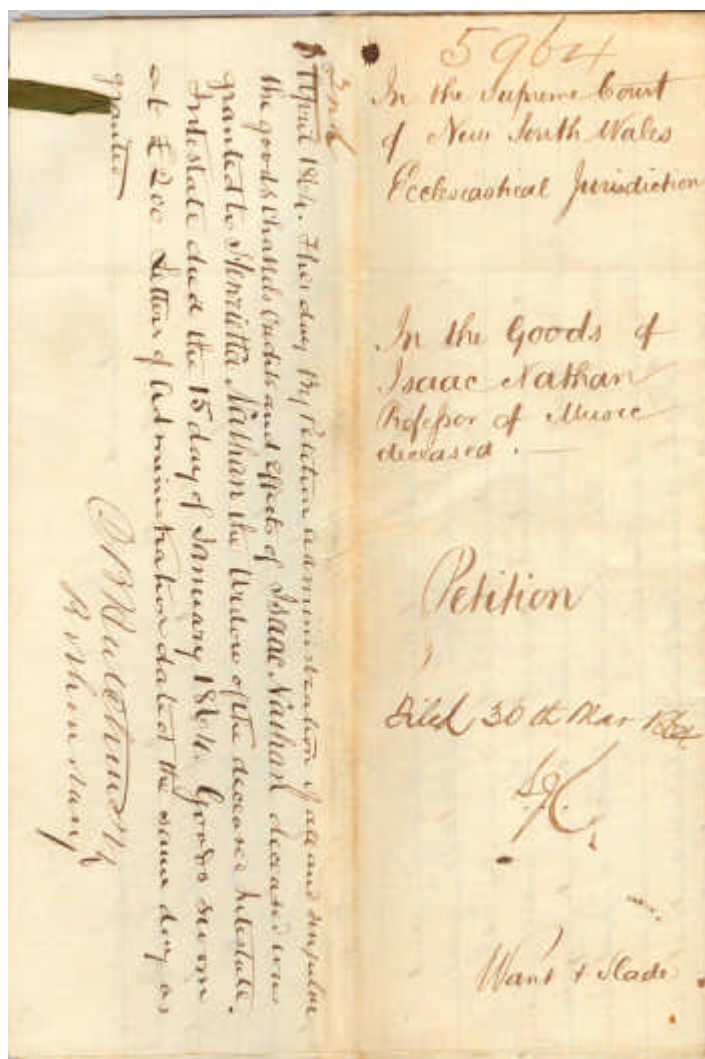 5964
In the Supreme Court
of New South Wales
Ecclesiastical Jurisdiction
In the Goods of
Isaac Nathan
Professor of Music
deceased. —
Petition
Filed 30th Mar
Want & Slade
2nd
April 1864. This day By Petition administration of all and singular
the goods Chattels Credits and Effects of Isaac Nathan deceased was
granted to Henrietta Nathan the Widow of the deceased Intestate.
Intestate died the 15 day of January 1864. Goods sworn
at £200 Letters of Administration dated the same day as
granted